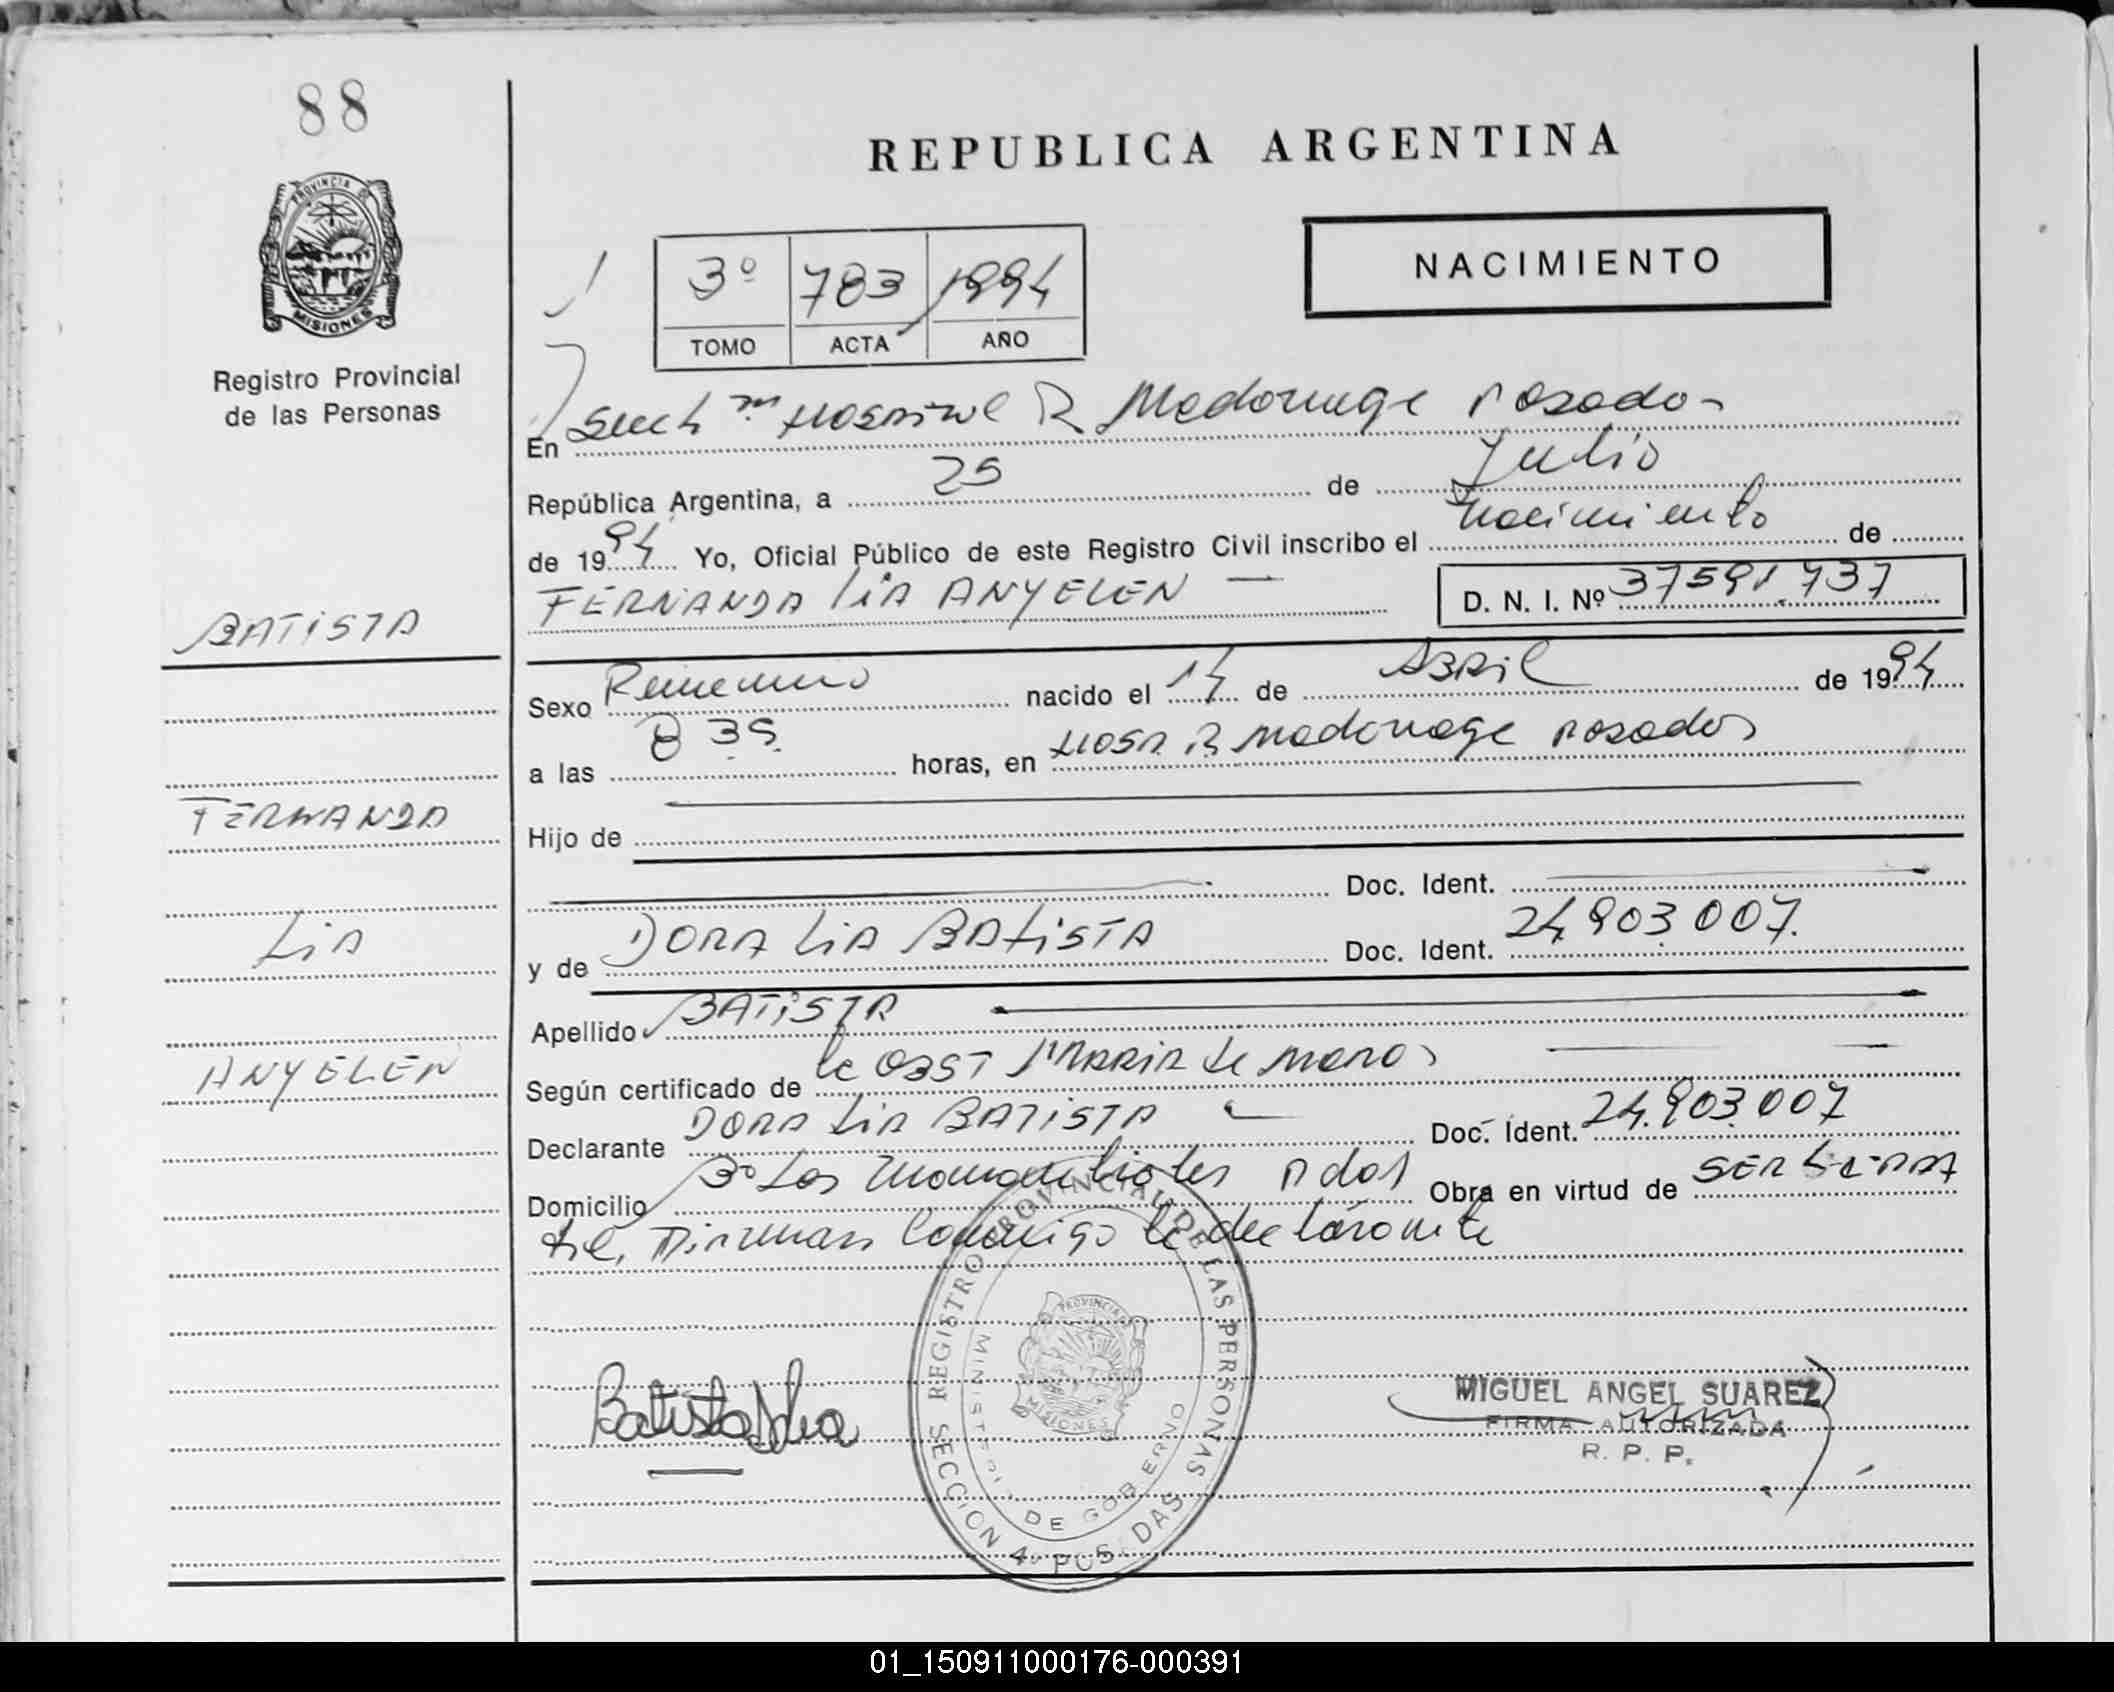 88
PROVINCIA DE
MISIONES
Registro Provincial
de las Personas
REPUBLICA ARGENTINA
3º 783 1994
TOMO ACTA AÑO
NACIMIENTO
En R Madariaga Posadas
República Argentina, a 25 de Julio
de 1994 Yo, Oficial Público de este Registro Civil inscribo el Nacimiento de
FERNANDA LIA ANYELEN D. N. I. Nº 37591.737
BATISTA
Sexo Femenino nacido el 14 de ABRIL de 1994
a las 8 35 horas, en Hosp. R Madariaga Posadas
FERNANDA
Hijo de
Doc. Ident.
LIA
y de DORA LIA BATISTA Doc. Ident. 24.903.007.
Apellido BATISTA
ANYELEN
Según certificado de la OBST MARIA
Declarante DORA LIA BATISTA Doc. Ident. 24.903.007
Domicilio Bº Los Pdas Obra en virtud de SER LA
conmigo la declarante
REGISTRO PROVINCIAL DE LAS PERSONAS
SECCION 4º POSADAS
MINISTERIO DE GOBIERNO
PROVINCIA
MISIONES
Batista Lia
MIGUEL ANGEL SUAREZ
FIRMA AUTORIZADA
R. P. P.
01_150911000176-000391